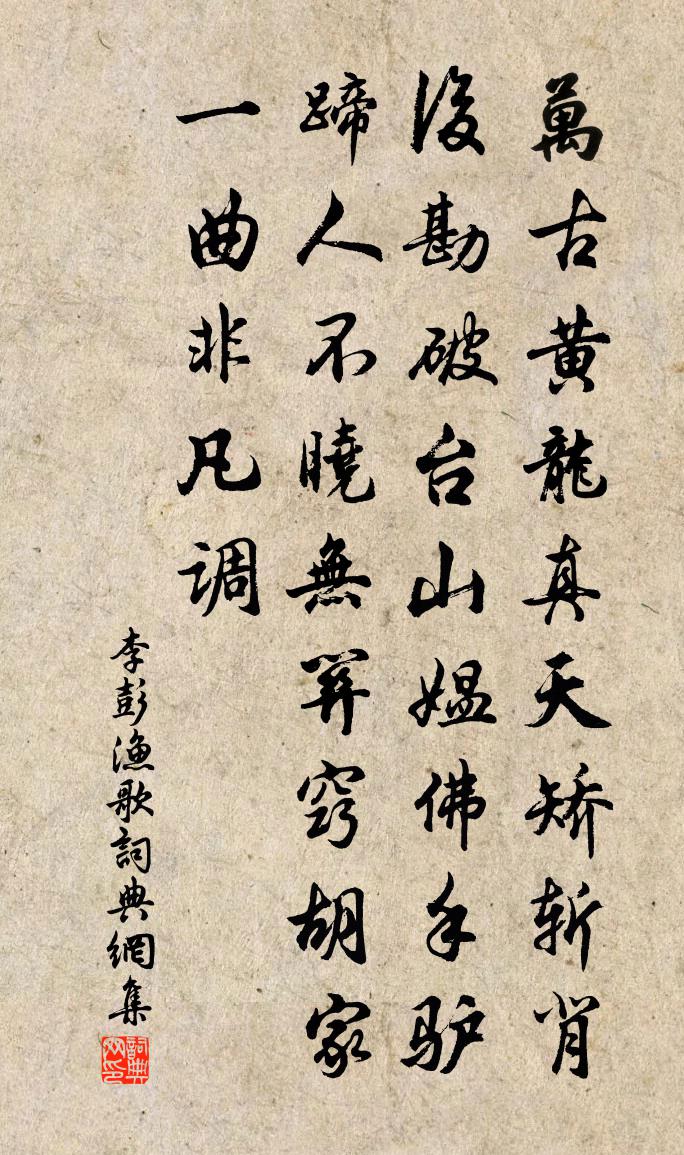 萬古黄龍真天矯斬肖
後勘破台山媼佛手驴
蹄人不曉無關竅胡家
一曲非凡调
李彭漁歌詞典網集
詞典网印